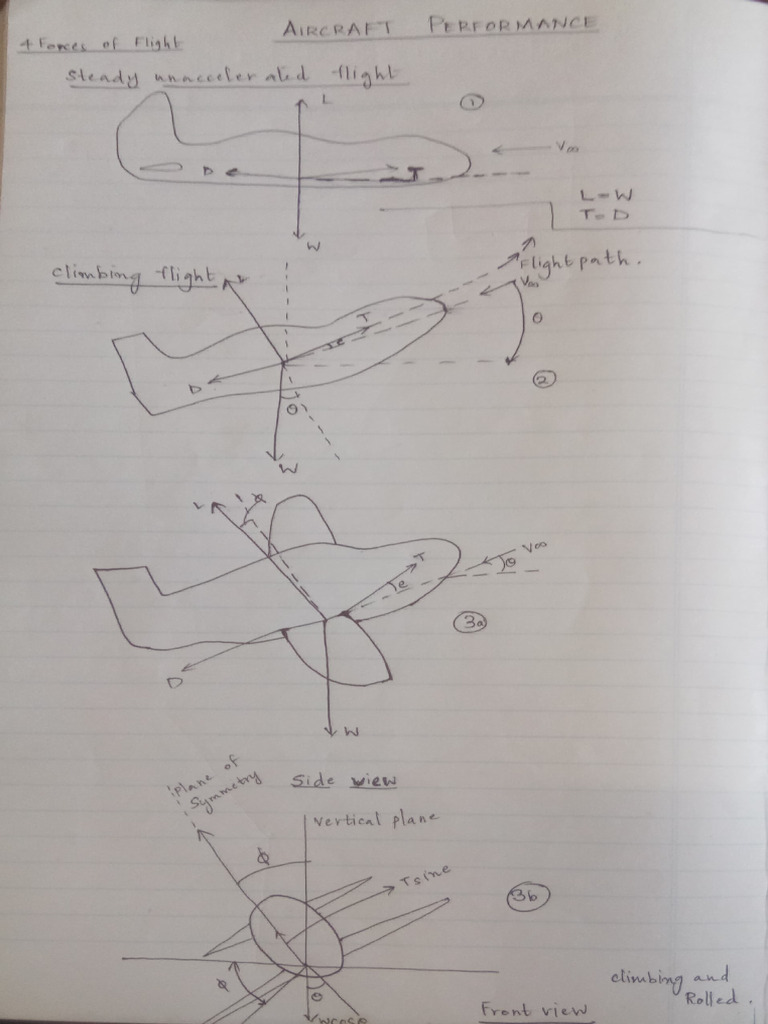 AIRCRAFT PERFORMANCE
4 Forces of Flight
Steady unaccelerated flight
L
1
D
T
V∞
L=W
T=D
W
Climbing flight
L
Flight path.
V∞
T
e
θ
D
2
θ
W
L
ϕ
T
V∞
θ
e
3a
D
W
Side view
Plane of
Symmetry
Vertical plane
ϕ
Tsine
3b
ϕ
θ
Wcosθ
climbing and
Rolled.
Front view